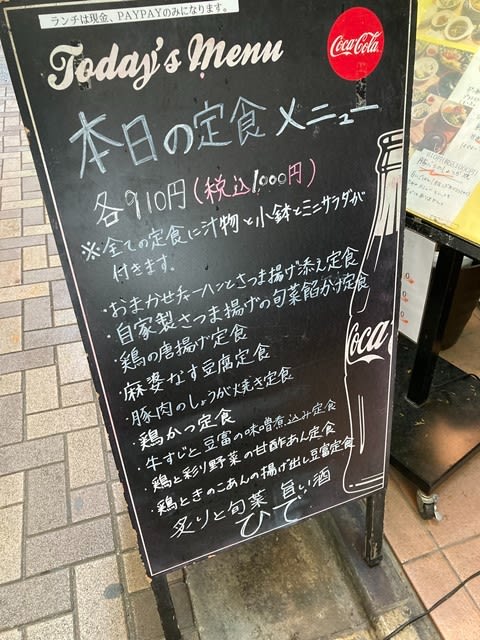 ランチは現金、PAYPAYのみになります。
Today's Menu
Coca-Cola
本日の定食メニュー
各910円(税込1000円)
※全ての定食に汁物と小鉢とミニサラダが
付きます。
・おまかせチャーハンとさつま揚げ添え定食
・自家製さつま揚げの旬菜餡かけ定食
・鶏の唐揚げ定食
・麻婆なす豆腐定食
・豚肉のしょうが焼き定食
・鶏かつ定食
・牛すじと豆富の味噌煮込み定食
・鶏と彩り野菜の甘酢あん定食
・鶏ときのこあんの揚げ出し豆富定食
炙りと旬菜 旨い酒
ひで
Coca